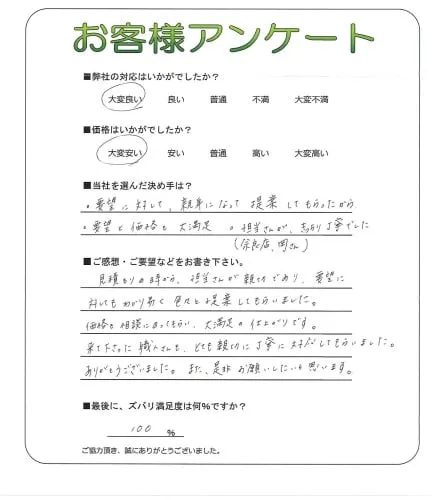 お客様アンケート
■弊社の対応はいかがでしたか?
大変良い 良い 普通 不満 大変不満
■価格はいかがでしたか?
大変安い 安い 普通 高い 大変高い
■当社を選んだ決め手は?
・要望に対して、親身になって提案してもらったから
・要望と価格も大満足 ・担当さんが、とても丁寧でした
(奈良店、岡さん)
■ご感想・ご要望などをお書き下さい。
見積もりの時から、担当さんが親切であり、要望に
対してもわかり易く色々と提案してもらいました。
価格も相談にのってもらい、大満足の仕上がりです。
来て下さった職人さんも、とても親切に丁寧に対応してもらいました。
ありがとうございました。また、是非お願いしたいと思います。
■最後に、ズバリ満足度は何%ですか?
100 %
ご協力頂き、誠にありがとうございました。